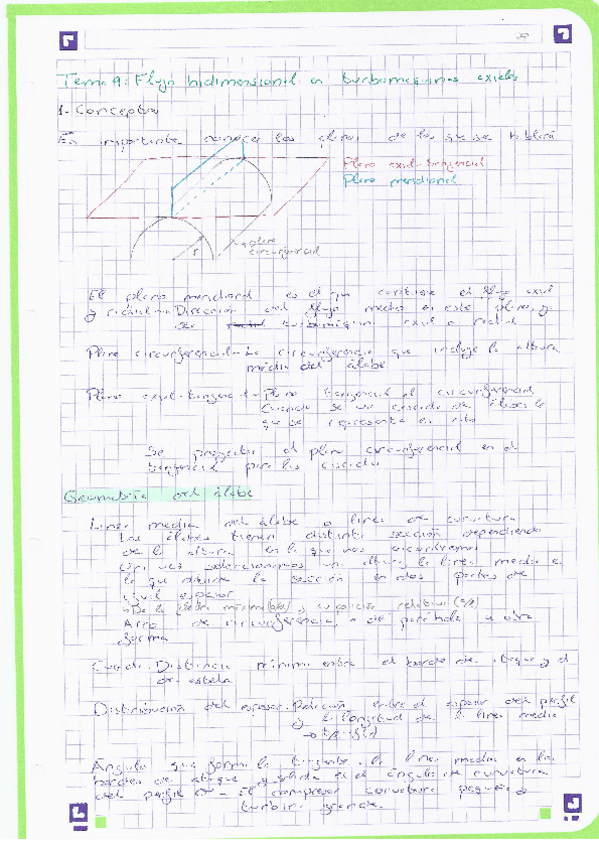 Tema 9: Flujo bidimensional en turbomáquinas axiales
1- Conceptos
Es importante conocer los planos de los que se hablará
Plano axial-tangencial
Plano meridional
r
plano circunferencial
El plano meridional es el que contiene el flujo axial
y radial. Dirección del flujo medio en este plano, y
es turbomáquina axial o radial
Plano circunferencial: La circunferencia que incluye la altura
media del álabe
Plano axial-tangencial: Plano tangencial al circunferencial
Cuando se ve cascada de álabes lo
que se representa es esto
Se proyecta el plano circunferencial en el
tangencial para las cascadas
Geometría del álabe
Línea media del álabe o línea de curvatura
Los álabes tienen distinta sección dependiendo
de la altura en la que nos encontremos
una vez seleccionamos una altura la línea media es
la que divide la sección en dos partes de
igual espesor
De la flecha máxima y su posición relativa
Arco de circunferencia, o de parábola u otra
forma
Cuerda: Distancia mínima entre el borde de ataque y el
de estela
Distribución del espesor: Relación entre el espesor del perfil
y la longitud de la línea media
Ángulo que forma la tangente a la línea media en los
bordes de ataque y salida es el ángulo de curvatura
del perfil σ - El compresor curvatura pequeña
turbina grande.